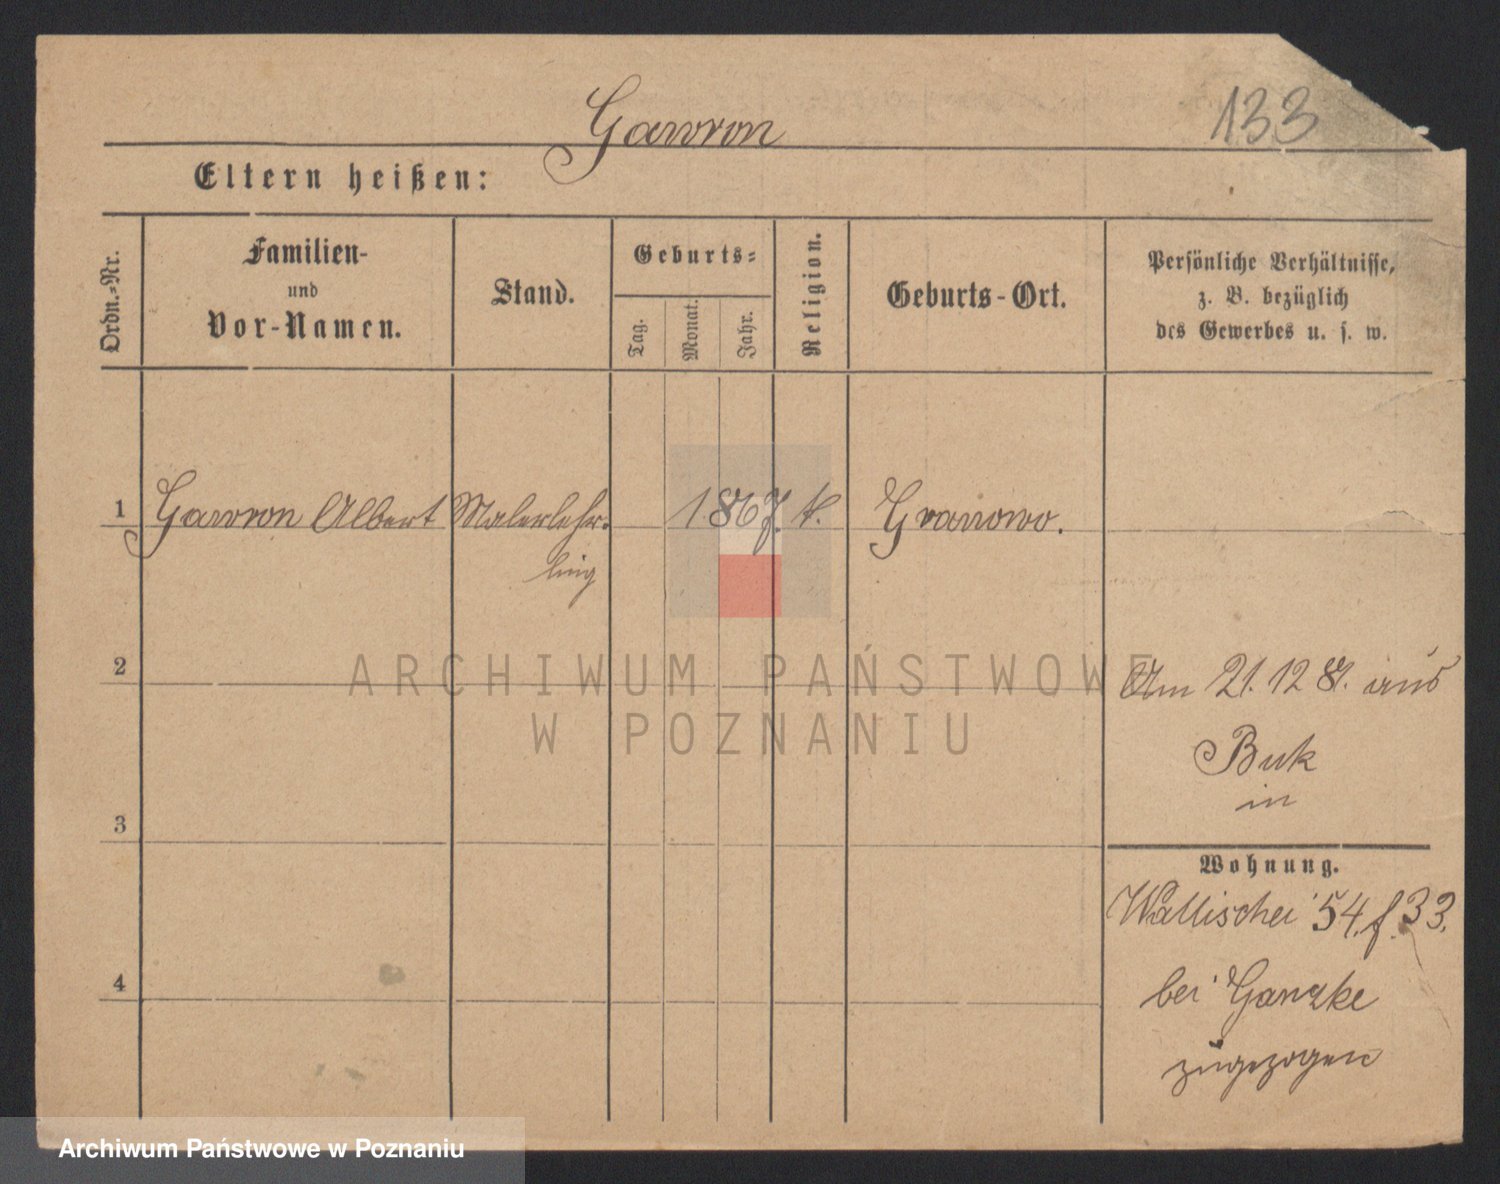 Gawron
133
Eltern heißen:
Ordn.-Nr.
Familien-
und
Vor-Namen.
Stand.
Geburts-
Tag.
Monat.
Jahr.
Religion.
Geburts-Ort.
Persönliche Verhältnisse,
z. B. bezüglich
des Gewerbes u. s. w.
1 Gawron Albert Malerlehr- 1867. k. Granowo.
ling
2
Am 21. 12 87. aus
Buk
in
3
Wohnung.
Wallischei 54. f. 33.
4
bei Ganzke
zugezogen
ARCHIWUM PAŃSTWOWE
W POZNANIU
Archiwum Państwowe w Poznaniu